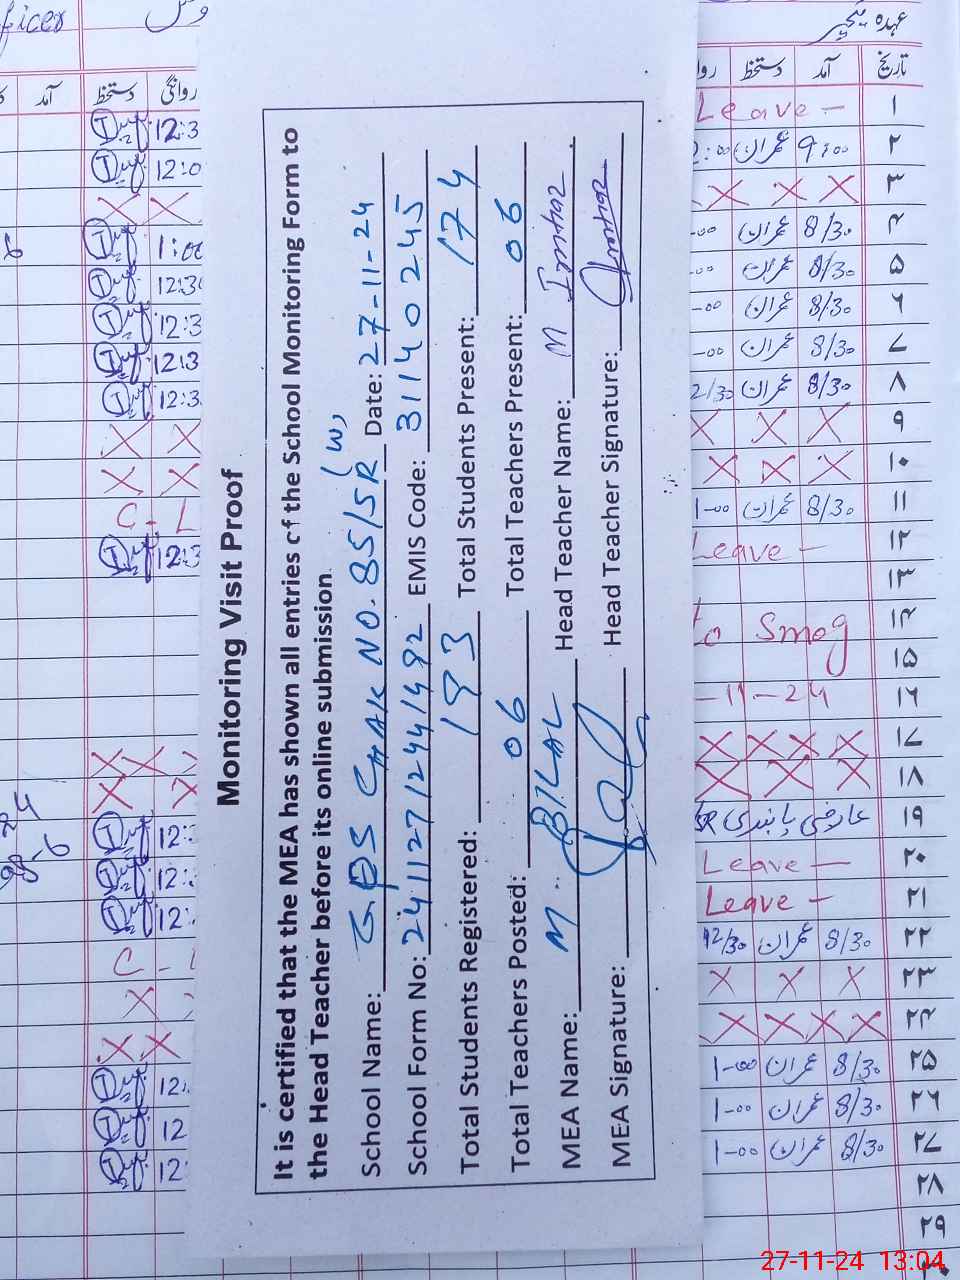 Monitoring Visit Proof
It is certified that the MEA has shown all entries of the School Monitoring Form to
the Head Teacher before its online submission
School Name: GPS CHAK NO. 85/5R (W) Date: 27-11-24
School Form No: 24112712441492 EMIS Code: 31140245
Total Students Registered: 193 Total Students Present: 174
Total Teachers Posted: 06 Total Teachers Present: 06
MEA Name: M. BILAL Head Teacher Name: M Imtiaz
MEA Signature: Head Teacher Signature:
ficer
آمد دستخط روانگی
12:3
12:0
X X
1:00
12:30
12:3
12:3
12:3
X X
X X
C-L
12:3
X X X
X X
12:
12:
12:
C-L
X
X X
12:
12
12
عہدہ ٹیچر
تاریخ آمد دستخط روا
۱ Leave -
۲ 9:00 عمران :00
۳ X X X
۴ 8/30 عمران -00
۵ 8/30 عمران -00
۶ 8/30 عمران -00
۷ 8/30 عمران -00
۸ 8/30 عمران 2/30
۹ X X X
۱۰ X X X
۱۱ 8/30 عمران 1-00
۱۲ Leave -
۱۳
۱۴ to Smog
۱۵
۱۶ -11-24
۱۷ X X X X
۱۸ X X X
۱۹ عارضی پابندی
۲۰ Leave -
۲۱ Leave -
۲۲ 8/30 عمران 12/30
۲۳ X X X
۲۴ X X X X
۲۵ 8/30 عمران 1-00
۲۶ 8/30 عمران 1-00
۲۷ 8/30 عمران 1-00
۲۸
۲۹
27-11-24 13:04